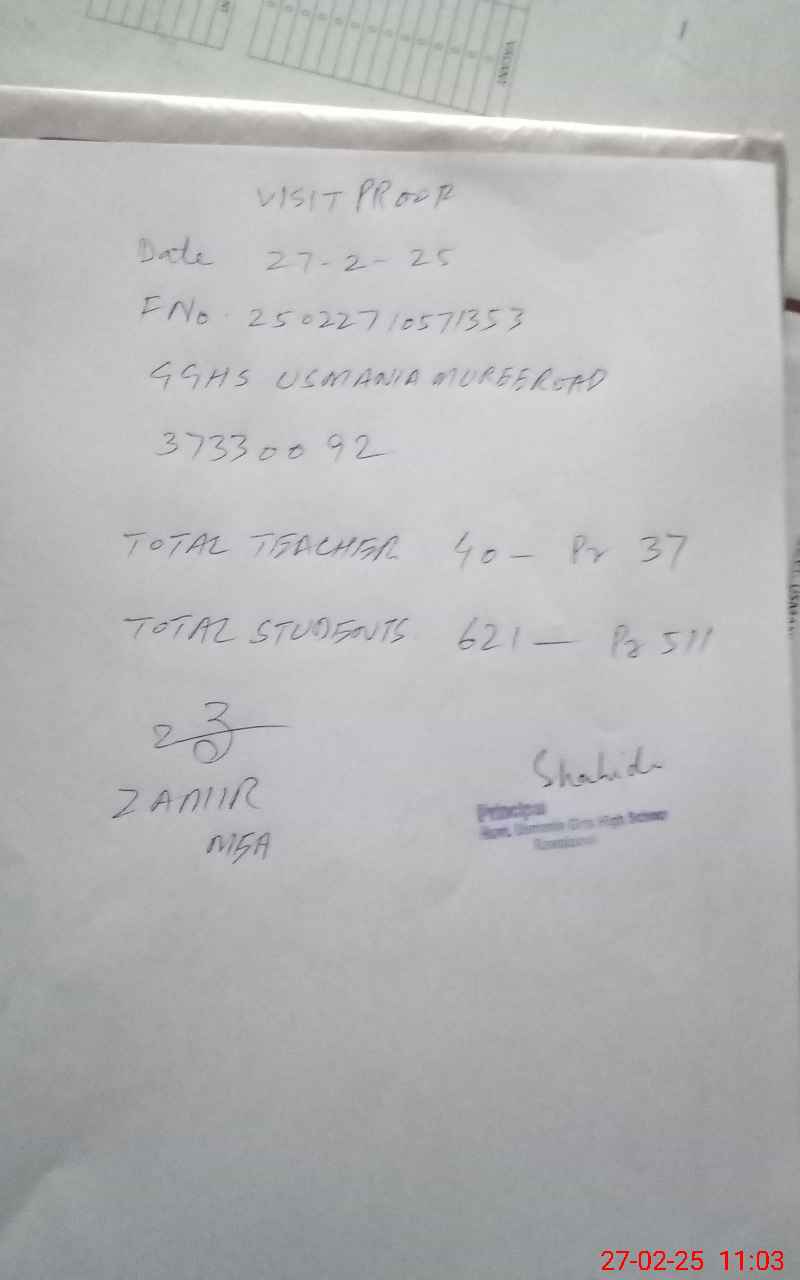 VACANT
VISIT PROOF
Date 27-2-25
FNo. 25022710571353
GGHS USMANIA MUREEROAD
37330092
TOTAL TEACHER 40 - Pr 37
TOTAL STUDENTS 621 - Pr 511
ZAMIR
MEA
Shahida
Principal
Govt. Usmania Girls High School
Rawalpindi
27-02-25 11:03